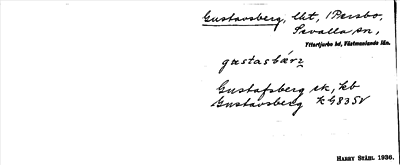 Gustavsberg, lht, i Persbo,
Sevalla sn,
Yttertjurbo hd, Västmanlands län.
gustasbärz
Gustafsberg sk, kb
Gustavsberg k G83SV
HARRY STÅHL 1936.